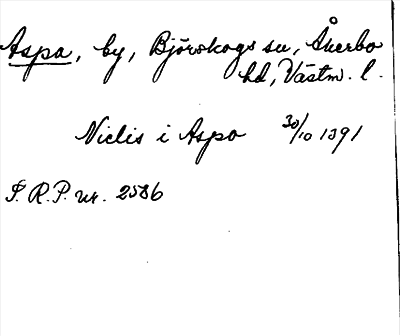 Aspa, by, Björskogs sn, Åkerbo
hd, Västm. l.
Niclis i Aspo 30/10 1391
S. R. P. nr. 2586